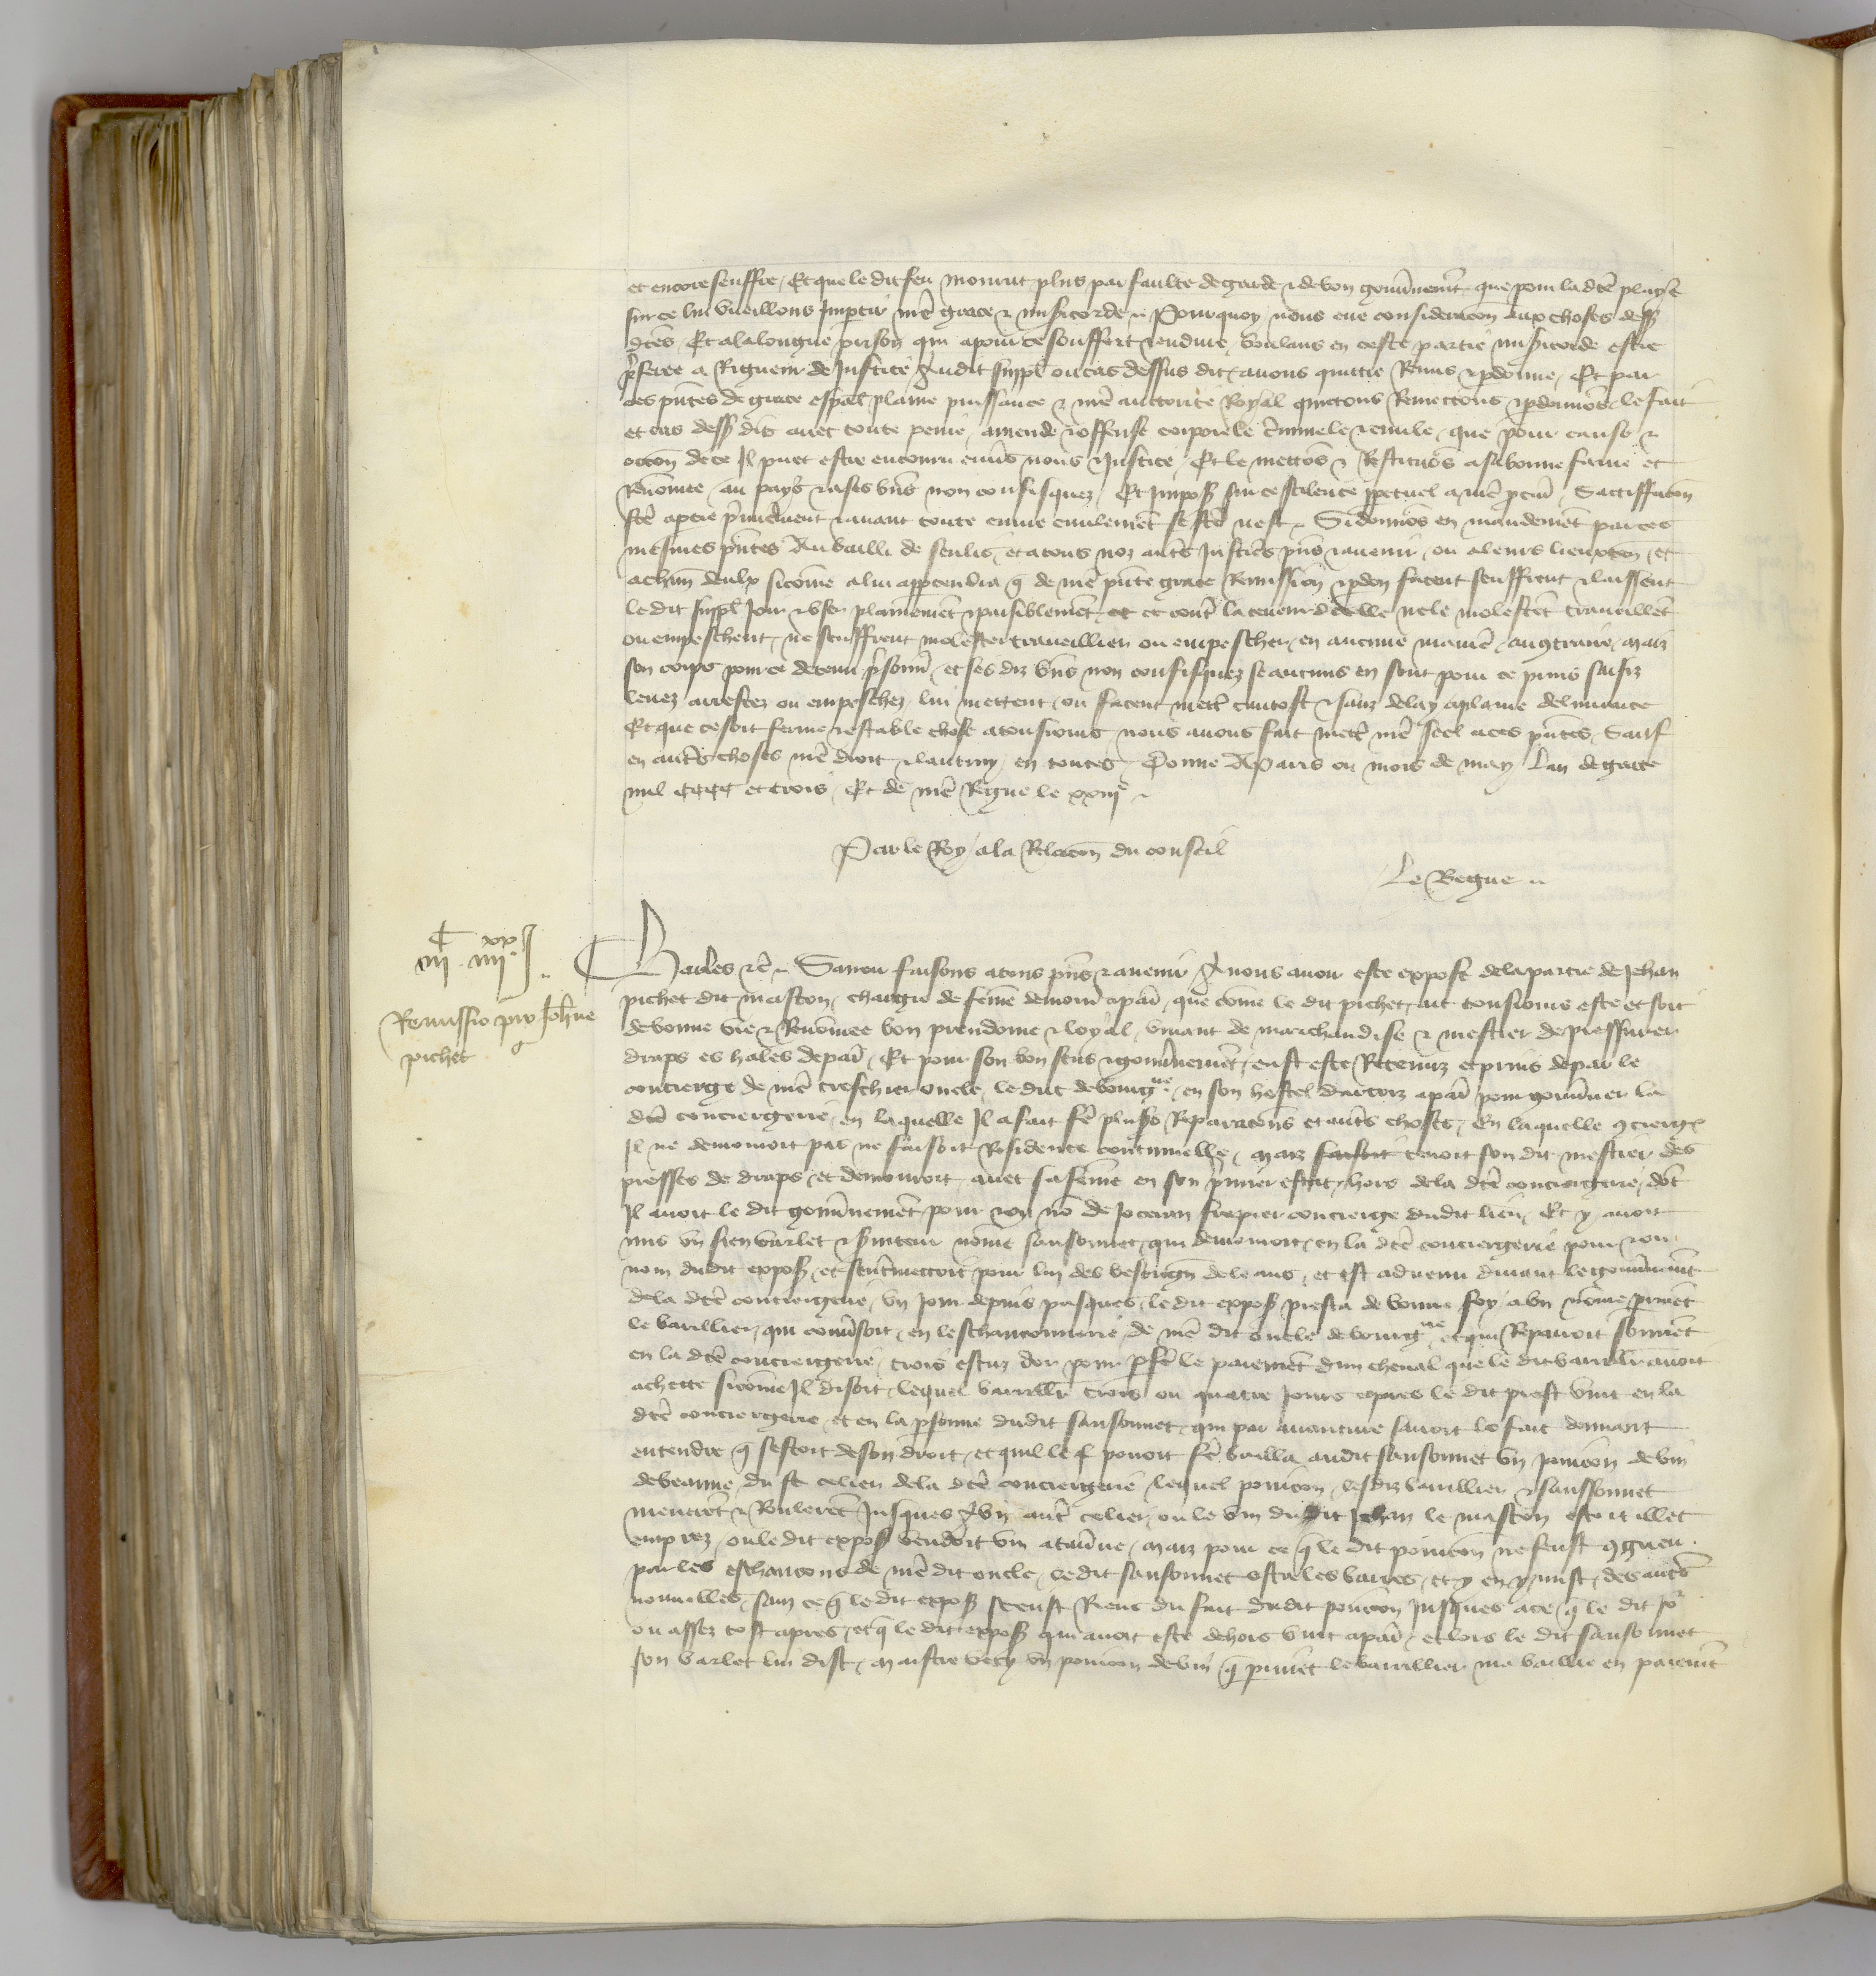 et encore seuffre, Et que le dit feu mourut plus par faulte de garde & de bon gouvnemēt que pour la dcē playe
sur ce lui vueillons Impartir nrē grace & misericorde ~ Pourquoy nous eue consideracōn aux choses dess9
dcēs, Et a la longue prison qui a pour ce souffert & endure, voulans en ceste partie misericorde estre
pferee a Rigueur de Justice, Audit suppl ou cas dessus dit, avons quittie Remis & pdonne, Et par
ces pntes de grace espāl plaine puissance & nrē auctorite Royal quictons Remectons & pdonnōs le fait
et cas dess9 dis avec toute peine, amende & offense corporele cminele & civile, que pour cause &
occōn de ce Il puet estre encouru envs nous & Justice, Et le mettōs & Restituōs a sa bonne fame et
Renōmee, au pays & a ses bns non confisquez, Et Impos9 sur ce scilence ppetuel a nrē pcur, Satiffacōn
fcē a ptie pmierement & avant toute euvre civilemēt se fcē nest ~ Si donnōs en mandemēt par ces
mesmes pntes Au bailli de senlis, et a tous noz autrs Justiciers pns & avenir, ou a leurs lieuxten, et
a chun deulx sicōme a lui apptendra q de nrē pnte grace Remission & pdon facent seuffrent & laissent
le dit suppl Jouir & user plainemēt & paisiblemēt et contr la teneur dicelle ne le molestēt traveillēt
ou empeschent, ne seuffrent molester traveillier ou empeschier, en aucune manie, au contraire, mais
son corps pour ce detenu prisonn, et ses diz bns non confisquez se aucuns en sont pour ce prins saisiz
levez arrestez ou empeschez, lui mettent ou facent mettr tantost & sanz delay a plaine delivrance
Et que ce soit ferme & estable chose a tousiours nous avons fait mettr nrē seel a ces pntes, Sauf
en autrs choses nrē droit & lautruy en toutes, Donne A Paris ou mois de may Lan de grace
mil CCCC et trois, Et de nrē Regne le xxiije ~
Par le Roy, a la Relacōn du conseil
Le Begue ~
C xx
iij . iiij . J
Charles &c ~ Savoir faisons a tous pns & avenir A nous avoir este expose de la partie de Jehan
Remissio pro Johne
pichet
pichet dit maston, chargie de feme demour a par, que come le dit pichet, ait tousiours este et soit
de bonne vie & Renōmee bon preudome & loyal, vivant de marchandise & mestier de pressurer
draps es hales de par, Et pour son bon sens & gouvnemēt, eust este Retenuz et prins depar le
concierge de nrē treschier oncle, le duc de bourgne, en son hostel dartoiz a par pour gouvner la
dcē conciergerie, en laquelle Il a fait fe plusrs Reparacōns et autrs choses, En laquelle concierge
Il ne demouroit pas ne faisoit Residence continuelle, mais faisoit tenoit son dit mestier des
presses de draps, et demouroit avec sa feme en son pmier estat, hors de la dcē conciergerie, dōt
Il avoit le dit gouvnemēt pour & ou nō de Joceran frepier concierge dudit lieu, Et y avoit
mis un sien varlet & suiteur nōme sansonnet, qui demouroit, en la dcē conciergerie pour & ou
nom dudit expos9, et sentmettoit pour lui des besongn de leans, et est advenu durant le gouvnemēt
de la dcē conciergerie, un Jour depuis pasques, le dit expos9 presta de bonne foy, a un nōme prinet
le barillier, qui couvsoit, en leschanconnerie de nrē dit oncle de bourgne, et qui Repairoit souvēt
en la dcē conciergerie, trois escuz dor pour pfe le paiemēt dun cheval que le dit barillier avoit
achette sicōme Il disoit, lequel barillr trois ou quatre Jours apres le dit prest vint en la
dcē conciergerie, et en la psonne dudit sansonnet, qui par aventure savoit le fait donnant
entendre q sestoit de son droit, et quil le povoit fe, bailla audit sansonnet un poincon de vin
de beaune, du st celier de la dcē conciergerie, lequel poincon, lesdiz barillier & sanssonnet
menerēt & Roulerēt Jusques A un autr celier, ou le vin dudit Jehan le maston estoit illec
emprez, ou le dit expos9 vendoit vin a tavne, mais pour ce q le dit poincōn ne feust congneu
par les eschancons de nrē dit oncle, ledit sansonnet osta les barres, et y en y mist, des autrs
nouvelles, sanz ce q le dit expos9 sceust Riens du fait dudit poincōn Jusques a ce q le dit Jor
ou assez tost apres, et q le dit expos9 qui avoit este dehors vint a par, et lors le dit sansonnet
son varlet lui dist, maistre vecy un poincon de vin q prinet le barillier ma baillie en paiemt